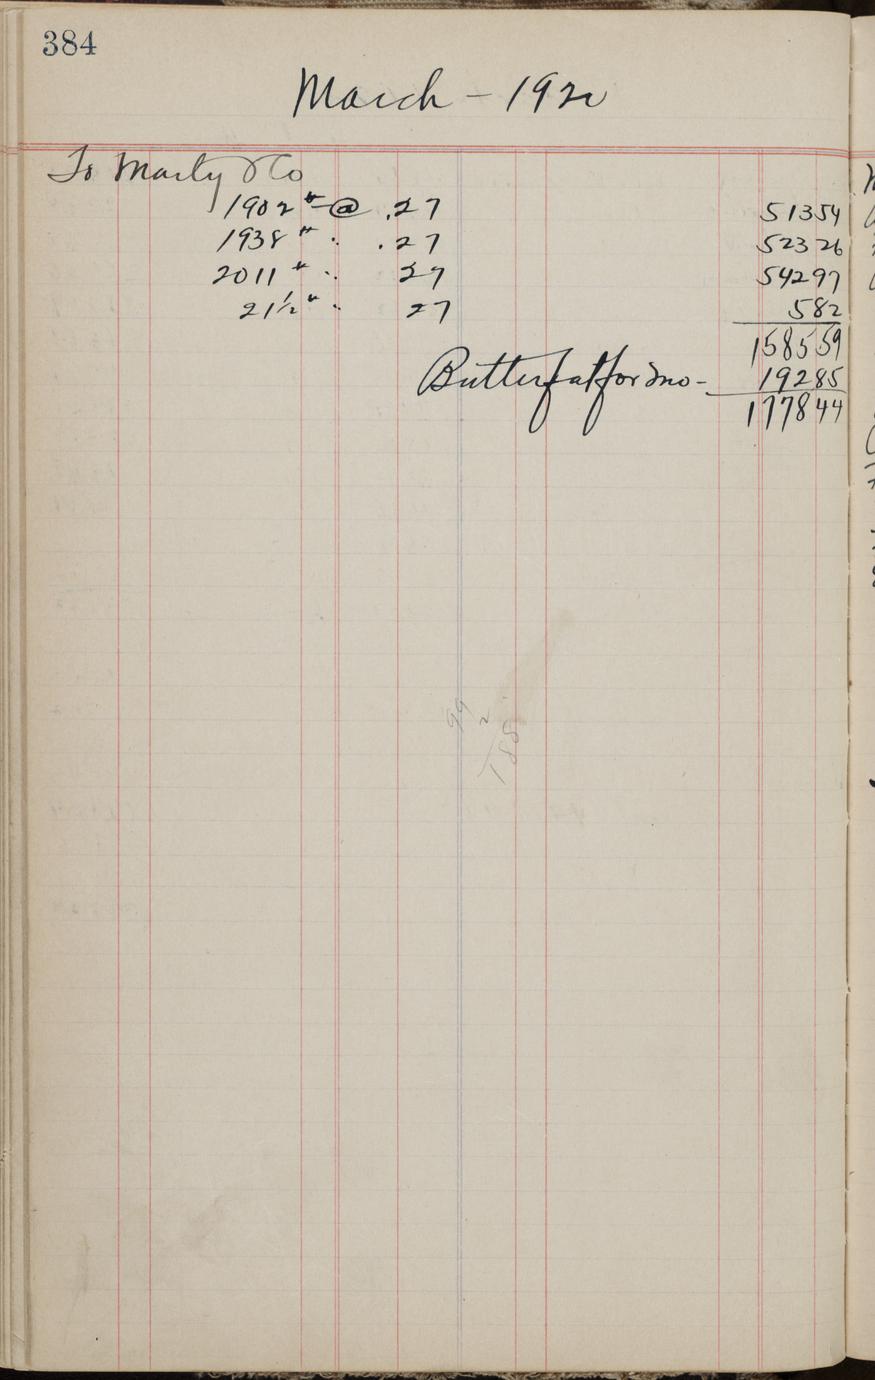 384
March - 1920
To Marty & Co
1902 # @ .27 51354
1938 # " .27 52326
2011 # " 27 54297
21 1/2 # " 27 582
158559
Butterfat for Mo- 19285
177844
99
2
188